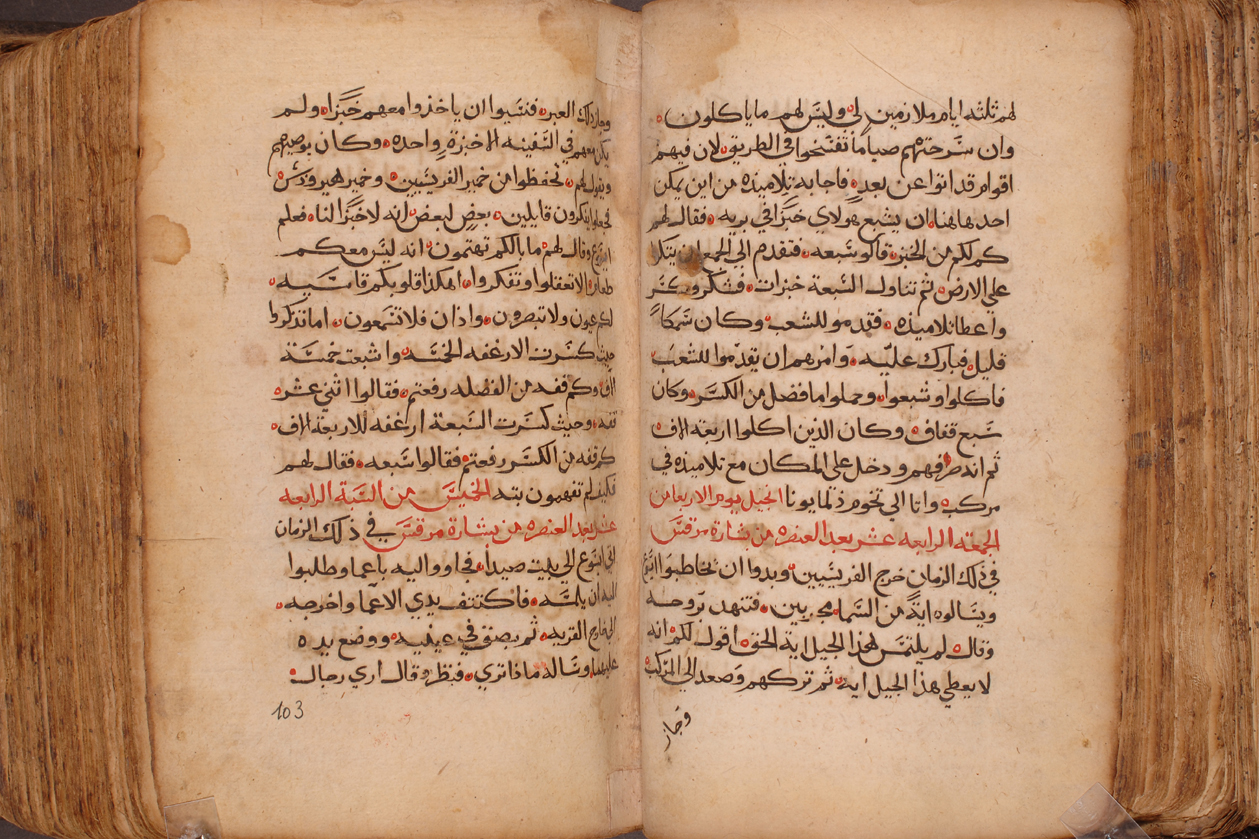 لهم ثلثه ايام ملازمين لي وليس لهم ما ياكلون
وان سرحتهم صياماً تفتخوا في الطريق لان فيهم
اقوام قد اتوا عن بعد فاجابه تلاميذه من اين يمكن
احد هاهنا ان يشبع هولاي خبزا في بريه فقال لهم
كم لكم من الخبز قالو سبعه فتقدم الي الجمع ان يتكا
علي الارض ثم تناول السبعة خبزات فشكر وكسر
واعطا تلاميذه فقدمو للشعب وكان سمكاً
قليل فبارك عليه وامرهم ان يقدموا للشعب
فاكلوا وشبعوا وحملوا ما فضل من الكسر وكان
سبع قفاف وكان الذين اكلوا اربعة الاف
ثم اند صرفهم ودخل علي المكان مع تلاميذه في
مركب واتا الي تخوم ذلمايونا انجيل يوم الاربعا من
الجمعه الرابعه عشر بعد العنصره من بشارة مرقس
في ذلك الزمان خرج الفريسيين وبدوا ان يخاطبوا
ويسالوه ايةً من السما مجربين فتنهد بروحه
وقال لم يلتمس لهذا الجيل اية الحق اقول لكم انه
لا يعطي هذا الجيل ايه ثم تركهم وصعد الي المركب
وجاز
وجاز ذلك العبر فنسيوا ان ياخذوا معهم خبزا ولم
يكن معهم في السفينه الا خبزة واحده وكان يوصيهم
ويقول لهم تحفظوا من خمير الفريسيين وخمير هيرودس
يفكرون قايلين بعضٍ لبعض انه لا خبزا لنا فعلم
وقال لهم ما بالكم تهتمون انه ليس معكم
طعام الا تعقلوا وتفكروا اهكذا قلوبكم قاسيه
لكم عيون ولا تبصرون واذان فلا تسمعون اما تذكروا
حيث كسرت الارغفه الخمسه واشبعت خمسة
الاف وكم قفه من الفضله رفعتم فقالوا اثني عشر
قفه وحيث كسرت السبعة ارغفه للاربعة الاف
كم قفه من الكسر رفعتم فقالوا سبعه فقال لهم
فكيف لم تفهمون بته الخميس من السبة الرابعه
عشر بعد العنصره من بشارة مرقس في ذلك الزمان
يسوع الي بيت صيدا فجاوو اليه باعما وطلبوا
اليه ان يلمسه فاكتنف يدي الاعما واخرجه
خارج القريه ثم بصق في عينيه ووضع يده
عليهما وساله ماذا تري فنظر وقال اري رجال
103